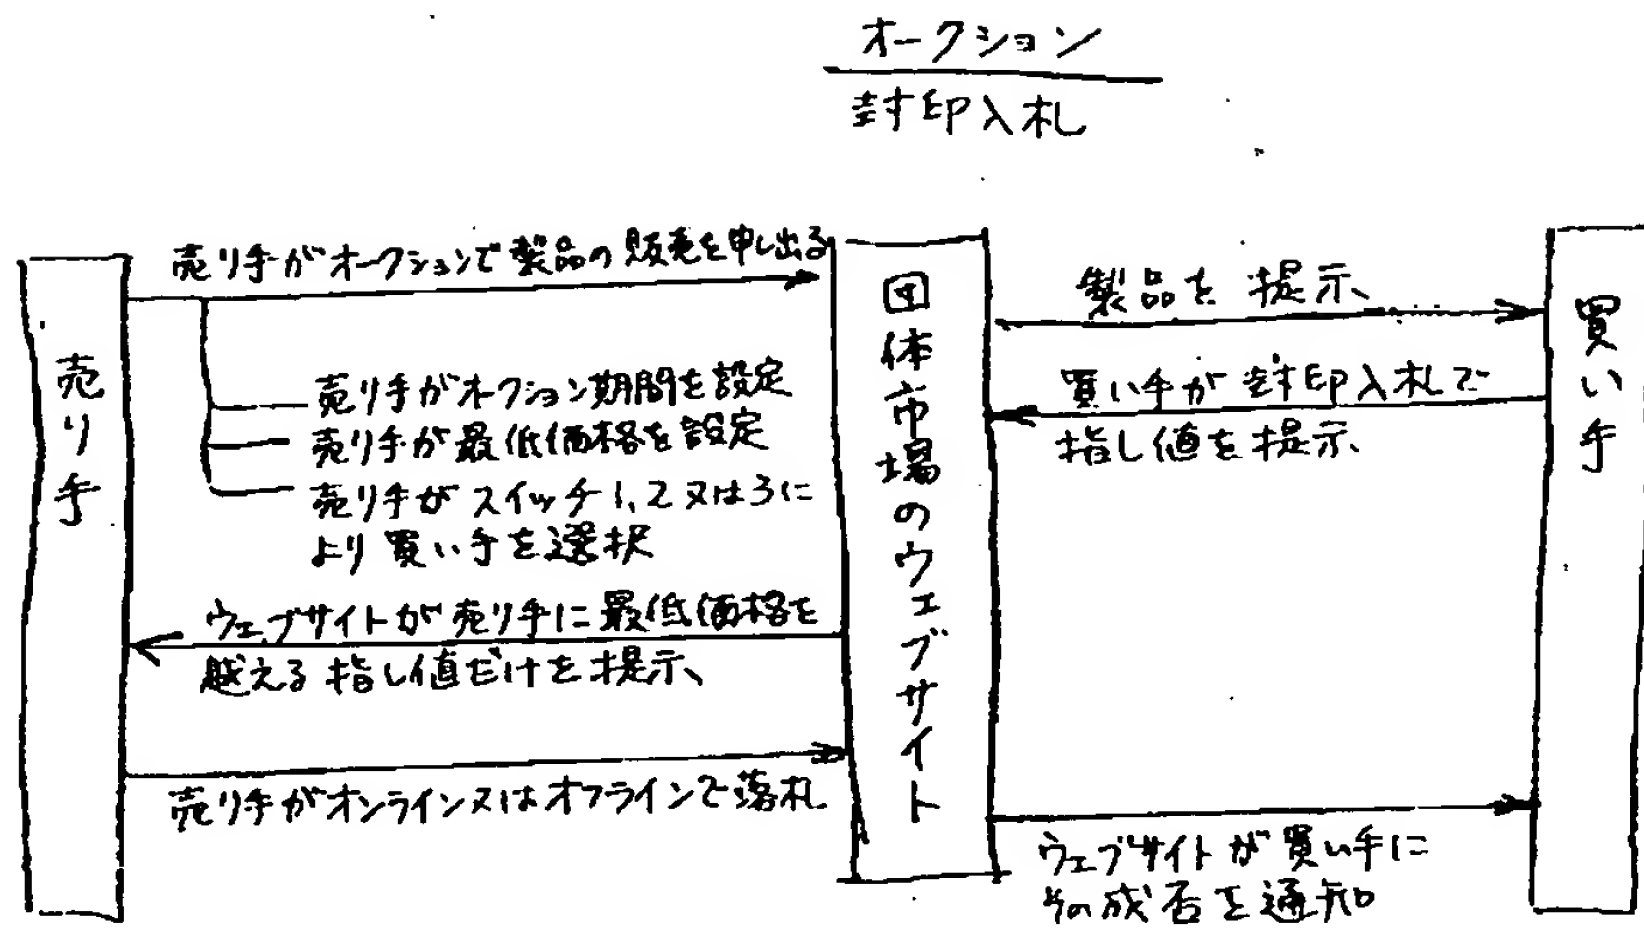 オークション
封印入札
売り手がオークションで製品の販売を申し出る
売り手
売り手がオークション期間を設定
売り手が最低価格を設定
売り手がスイッチ1、2又は3に
より買い手を選択
ウェブサイトが売り手に最低価格を
越える指し値だけを提示
売り手がオンライン又はオフラインで落札
団体市場のウェブサイト
製品を提示
買い手が封印入札で
指し値を提示
ウェブサイトが買い手に
その成否を通知
買い手